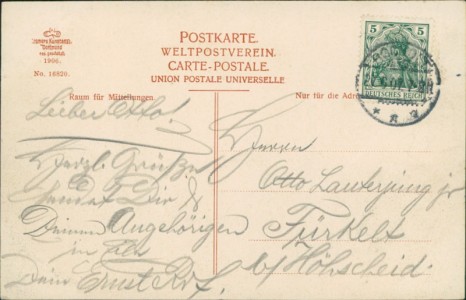 1906.
No. 16820.
POSTKARTE.
WELTPOSTVEREIN.
CARTE-POSTALE.
UNION POSTALE UNIVERSELLE
5 5
DEUTSCHES REICH
Raum für Mitteilungen.
Nur für die
Lieber Otto!
Herzl. Grüße
sendet Dir &
Deinen Angehörigen
in
Dein Ernst
Herrn
Otto Lauterjung jr
Fürkelt
b/ Höhscheid.